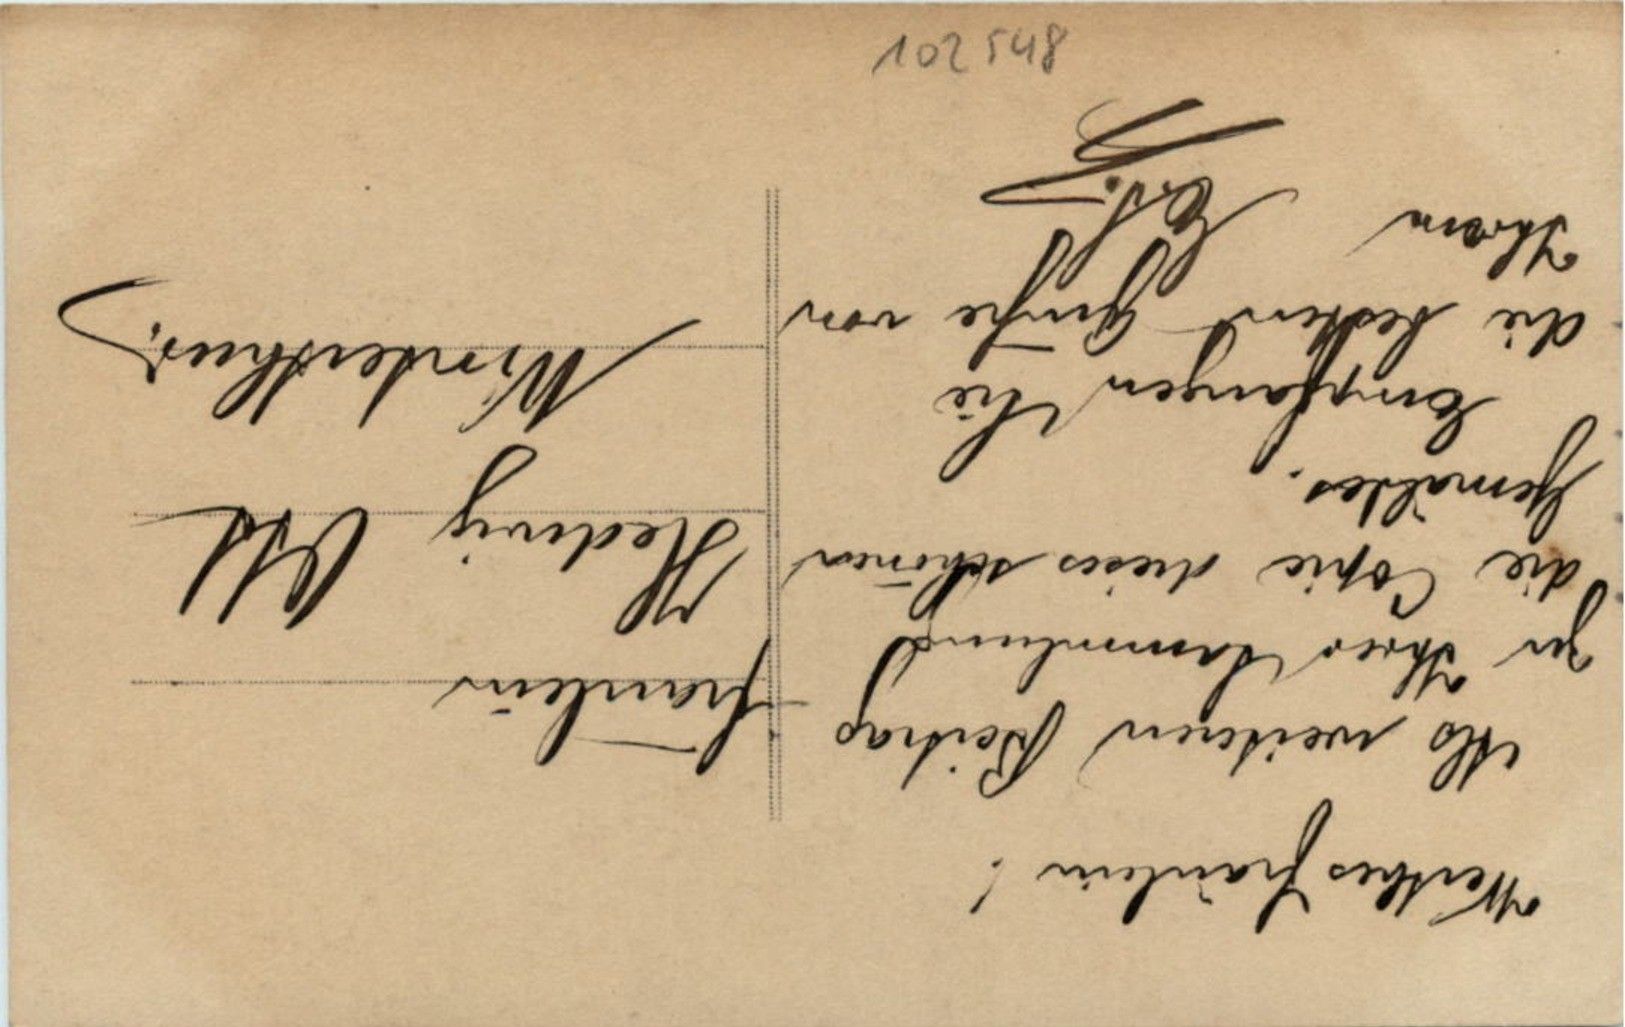 Werthes Fräulein!
Als weiteren Beitrag
zu Ihrer Sammlung
die Copie dieses schönen
Gemäldes.
Empfangen Sie
die besten Grüße von
Ihrem
Fräulein
Hedwig Ott
Winterthur.
102548